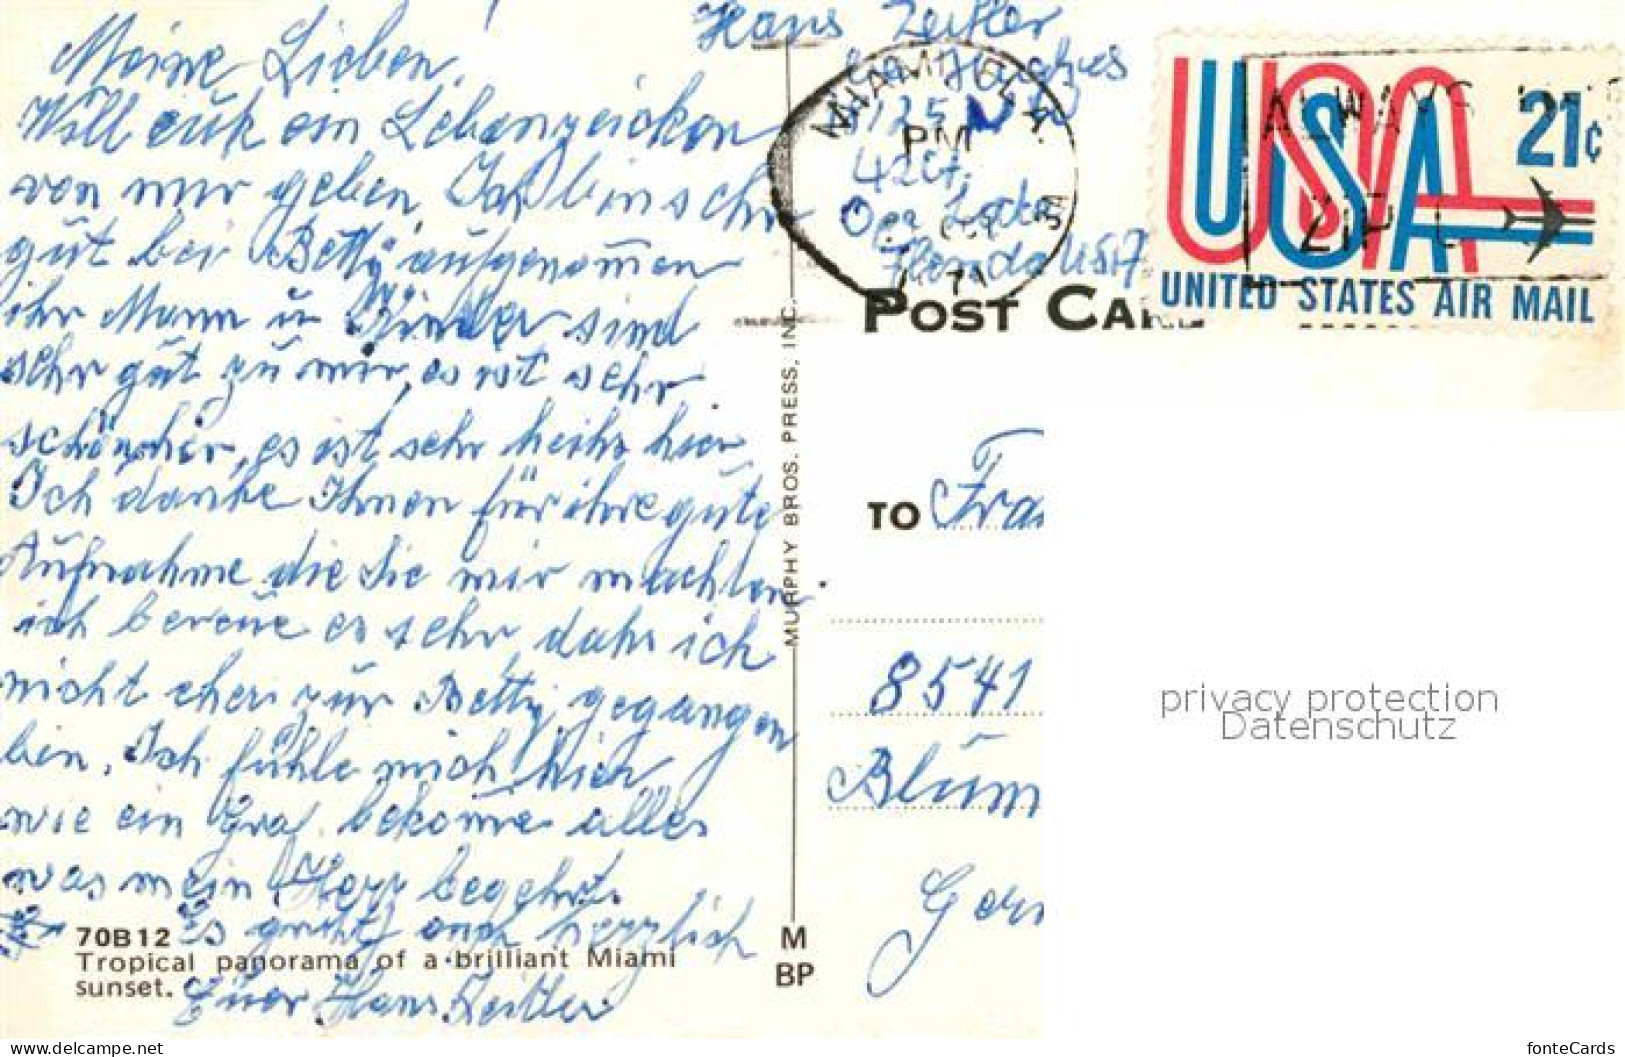 Meine Lieben!
Will euch ein Lebenzeichen
von mir geben. Ich bin sehr
gut bei Betty aufgenommen
ihr Mann u Kinder sind
sehr gut zu mir, es ist sehr
schön hier, es ist sehr heihs hier
Ich danke Ihnen für ihre gute
Aufnahme die Sie mir machten
ich bereue es sehr dahs ich
nicht eher zur Betty gegangen
bin. Ich fühle mich hier
wie ein Graf bekomme alles
was mein Herz begehrt.
Es grüht euch herzlich
Euer Hans Zeitler
70B12
Tropical panorama of a brilliant Miami
sunset.
MURPHY BROS. PRESS, INC.
M
BP
Hans Zeitler
5125 N
42 St.
Florida USA
MIAMI, FLA.
PM
POST CARD
USA
21c
UNITED STATES AIR MAIL
ALWAYS
ZIP
TO Frau
8541
Blum
Ger
privacy protection
Datenschutz
www.delcampe.net
fonteCards